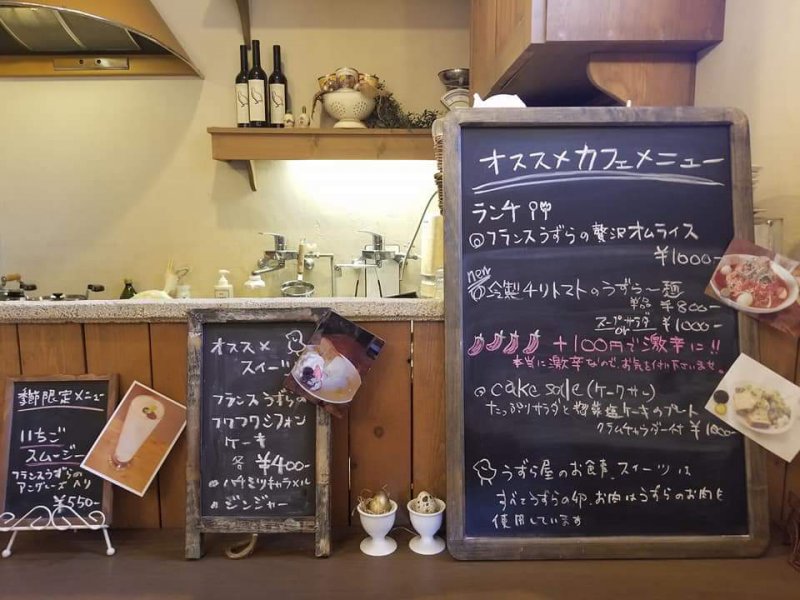 季節限定メニュー
いちご
スムージー
フランスうずらの
アングレーズ入り
¥550-
オススメ
スイーツ
フランスうずらの
フワフワシフォン
ケーキ
各 ¥400-
ハチミツキャラメル
ジンジャー
オススメカフェメニュー
ランチ
@フランスうずらの贅沢オムライス
¥1000-
new
@冷製チリトマトのうずらー麺
単品 ¥800-
スープorサラダ ¥1000-
+100円で激辛に!!
本当に激辛なので、お気を付け下さいませ。
@cake sale (ケークサレ)
たっぷりサラダと惣菜塩ケーキのプレート
クラムチャウダー付 ¥1000-
うずら屋のお食事、スイーツは
すべてうずらの卵、お肉はうずらのお肉を
使用しています